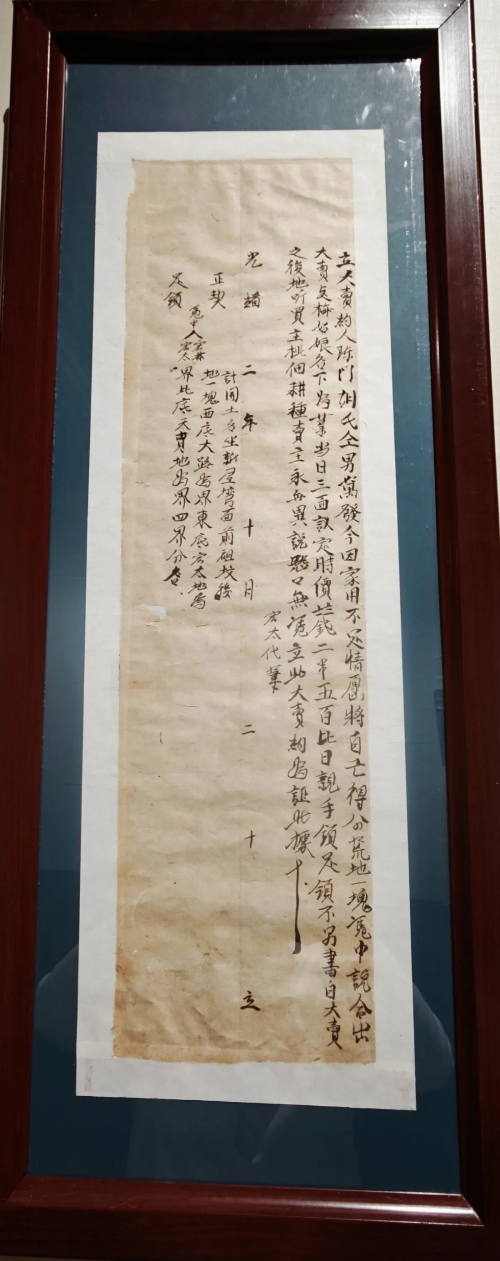 立大賣約人陈门胡氏仝男萬發今因家用不足情愿將自己得分荒地一塊凴中説合出
大賣與梅姑娘名下為業当日三面议定時價钱二串五百比日親手領足領不另書自大賣
之後地听買主批佃耕種賣主永無異説恐口無凴立此大賣約為証此據
宏太代筆
光緒二年十月二十立
計開土名坐新屋灣面前祖坟後
地一塊西底大路為界東底宏太地為
界北底天貴地為界四界分
凴中人宏太
正契
足領